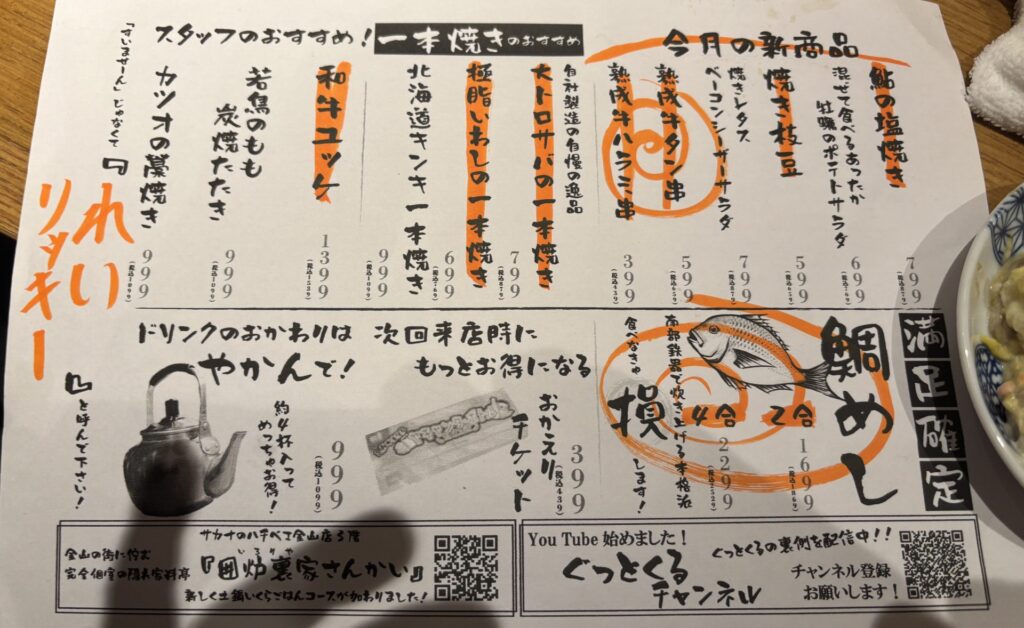 今月の新商品
鮎の塩焼き
799
(税込879)
混ぜて食べるあったか
牡蠣のポテトサラダ
699
(税込769)
焼き枝豆
599
(税込659)
焼きレタス
ベーコンシーザーサラダ
799
(税込879)
熟成牛タン串
599
(税込659)
熟成牛ハラミ串
399
(税込439)
一本焼きのおすすめ
自社製造の自慢の逸品
大トロサバの一本焼き
799
(税込879)
極脂いわしの一本焼き
699
(税込769)
北海道キンキ一本焼き
999
(税込1099)
スタッフのおすすめ!
和牛ユッケ
1399
(税込1539)
若鳥のもも
炭焼たたき
999
(税込1099)
カツオの藁焼き
999
(税込1099)
「すいませーん」じゃなくて
『
れい
リッキー
』と呼んで下さい!
満足確定
鯛めし
2合
1699
(税込1869)
4合
2299
(税込2529)
南部鉄器で炊き上げる本格派
食べなきゃ
損
します!
次回来店時に
もっとお得になる
おかえり
チケット
399
(税込439)
ドリンクのおかわりは
やかんで!
約4杯入って
めっちゃお得!
999
(税込1099)
サカナのハチベエ金山店3階
金山の街に佇む
完全個室の隠れ家料亭
いろりや
『囲炉裏家さんかい』
新しく土鍋いくらごはんコースが加わりました!
You Tube 始めました!
ぐっとくるの裏側を配信中!!
ぐっとくる
チャンネル
チャンネル登録
お願いします!